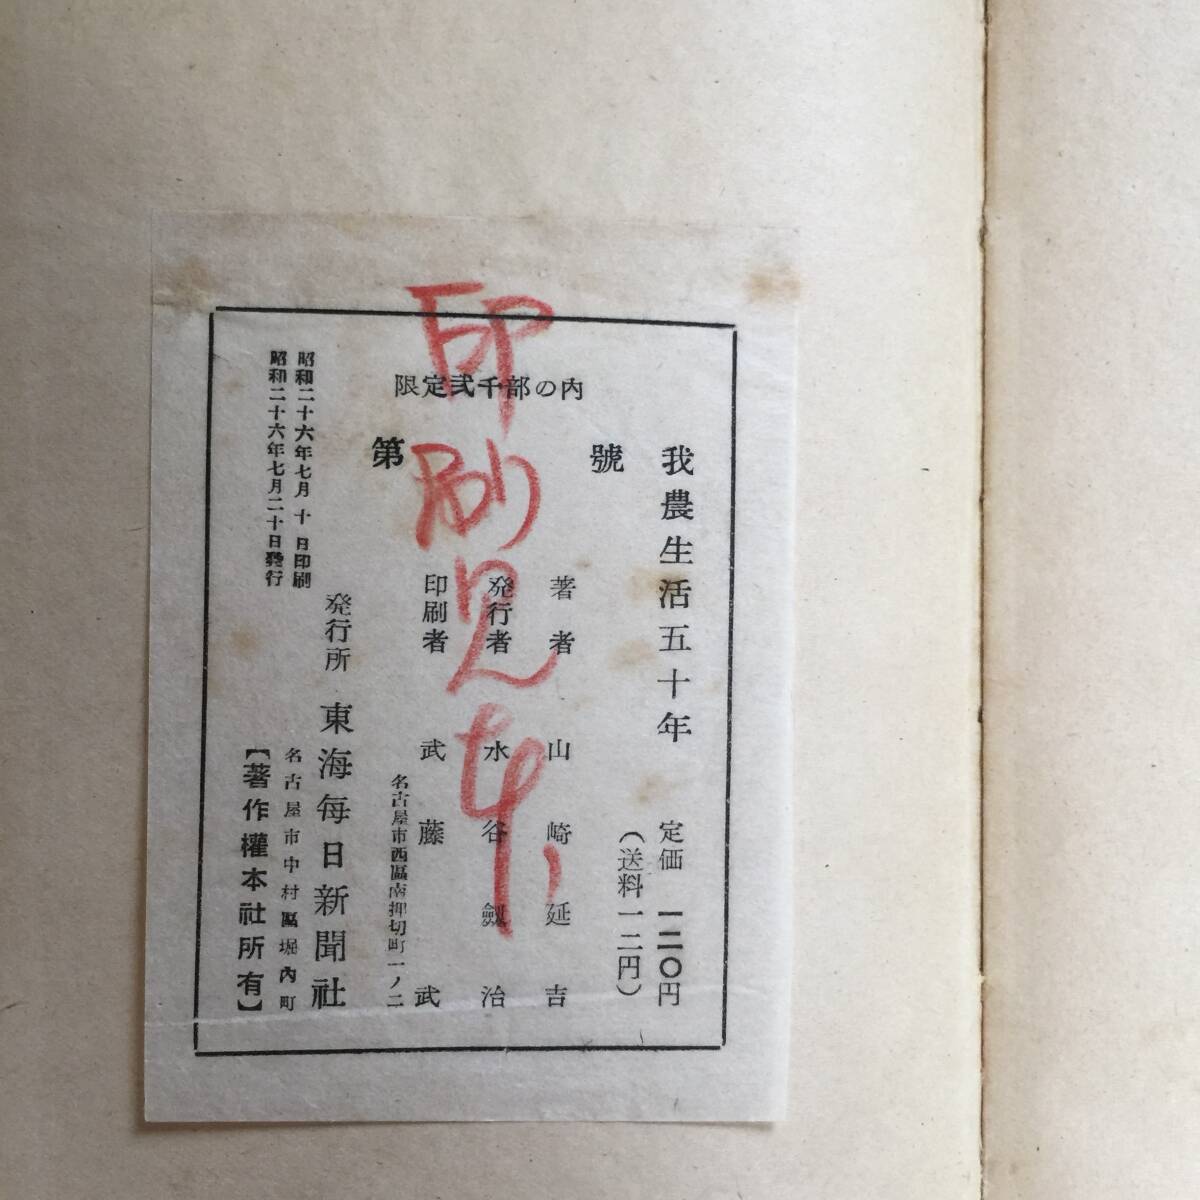 限定弐千部の内
第 號
我農生活五十年
定価 一二〇円
(送料一二円)
著者 山崎延吉
発行者 水谷劔治
印刷者 武藤武
名古屋市西區南押切町一ノ二
発行所 東海毎日新聞社
名古屋市中村區堀内町
昭和二十六年七月十日印刷
昭和二十六年七月二十日発行
【著作權本社所有】
印刷見本